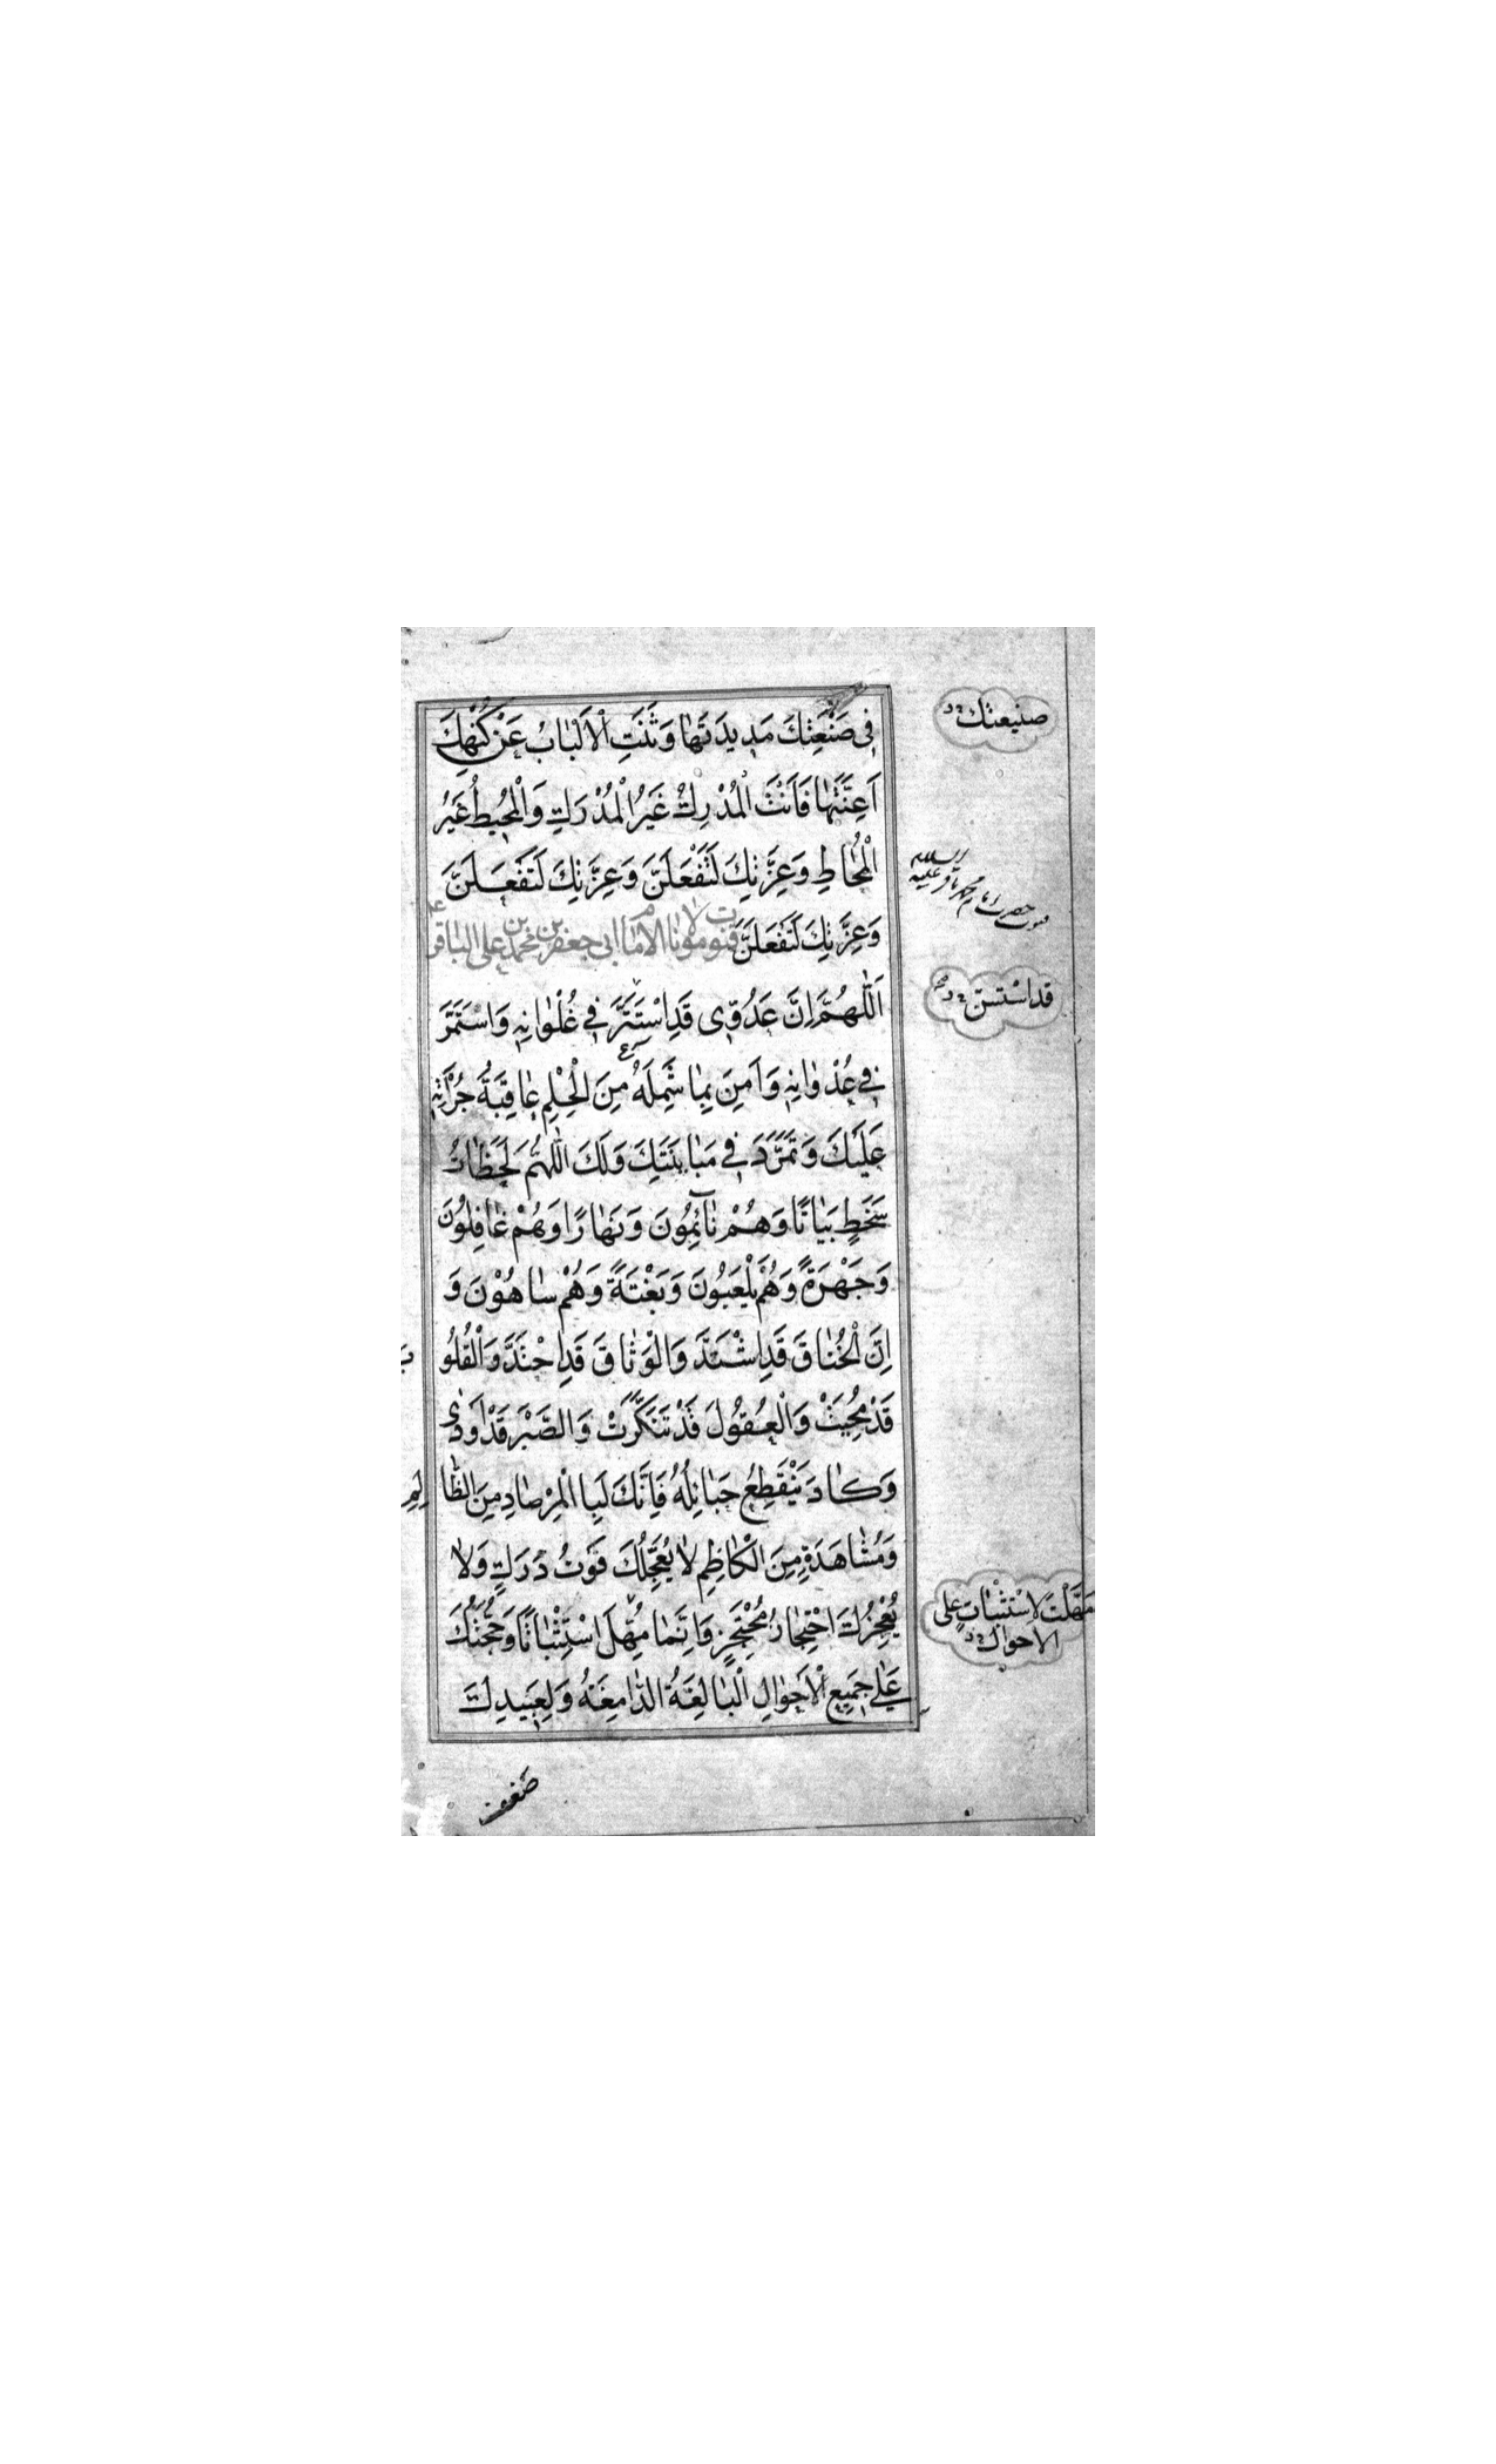 فِی صَنْعَتِكَ مَدِیدَتَهَا وَثَنَتِ الْاَلْبَابُ عَنْ كُنْهِكَ
اَعِنَّتَهَا فَاَنْتَ الْمُدْرِكُ غَیْرُ الْمُدْرَكِ وَالْمُحِیطُ غَیْرُ
الْمُحَاطِ وَعِزَّتِكَ لَتَفْعَلَنَّ وَعِزَّتِكَ لَتَفْعَلَنَّ
وَعِزَّتِكَ لَتَفْعَلَنَّ قنوت مولانا الامام ابی جعفر محمد بن علی الباقر ع
اَللّٰهُمَّ اِنَّ عَدُوِّی قَدِ اسْتَتَرَّ فِی غُلْوَانِهِ وَاسْتَمَرَّ
فِی عُدْوَانِهِ وَاَمِنَ بِمَا شَمِلَهُ مِنَ الْحِلْمِ عَاقِبَةَ جُرْأَتِهِ
عَلَیْكَ وَتَمَرَّدَ فِی مَبَایَنَتِكَ وَلَكَ اللّٰهُمَّ لَحَظَاتُ
سَخَطٍ بَیَاتًا وَهُمْ نَآئِمُونَ وَنَهَارًا وَهُمْ غَافِلُونَ
وَجَهْرَةً وَهُمْ یَلْعَبُونَ وَبَغْتَةً وَهُمْ سَاهُوْنَ وَ
اِنَّ الْخُنَاقَ قَدِ اشْتَدَّ وَالْوَثَاقَ قَدِ احْتَدَّ وَالْقُلُو ب
قَدْ مُحِیَتْ وَالْعُقُولَ قَدْ تَنَكَّرَتْ وَالصَّبْرَ قَدْ اَوْدٰی
وَكَادَ یَنْقَطِعُ حَبَائِلُهُ فَاِنَّكَ لَبِالْمِرْصَادِ مِنَ الظَّا لِمِ
وَمُشَاهَدَةٍ مِنَ الْكَاظِمِ لَا یُعَجِّلُكَ فَوْتُ دَرَكٍ وَلَا
یُعْجِزُكَ احْتِجَازُ مُحْتَجِزٍ وَاِنَّمَا مُهِّلَ اسْتِثْبَاتًا وَحُجَّتُكَ
عَلٰی جَمِیعِ الْاَحْوَالِ الْبَالِغَةُ الدَّامِغَةُ وَلِعَبِیدِكَ
صنیعتك
قنوت حضرت امام محمد باقر علیه السلام
قد استسن
مَهَّلْتَ لِاسْتِثْبَاتٍ علی
الاحوال
ضعف